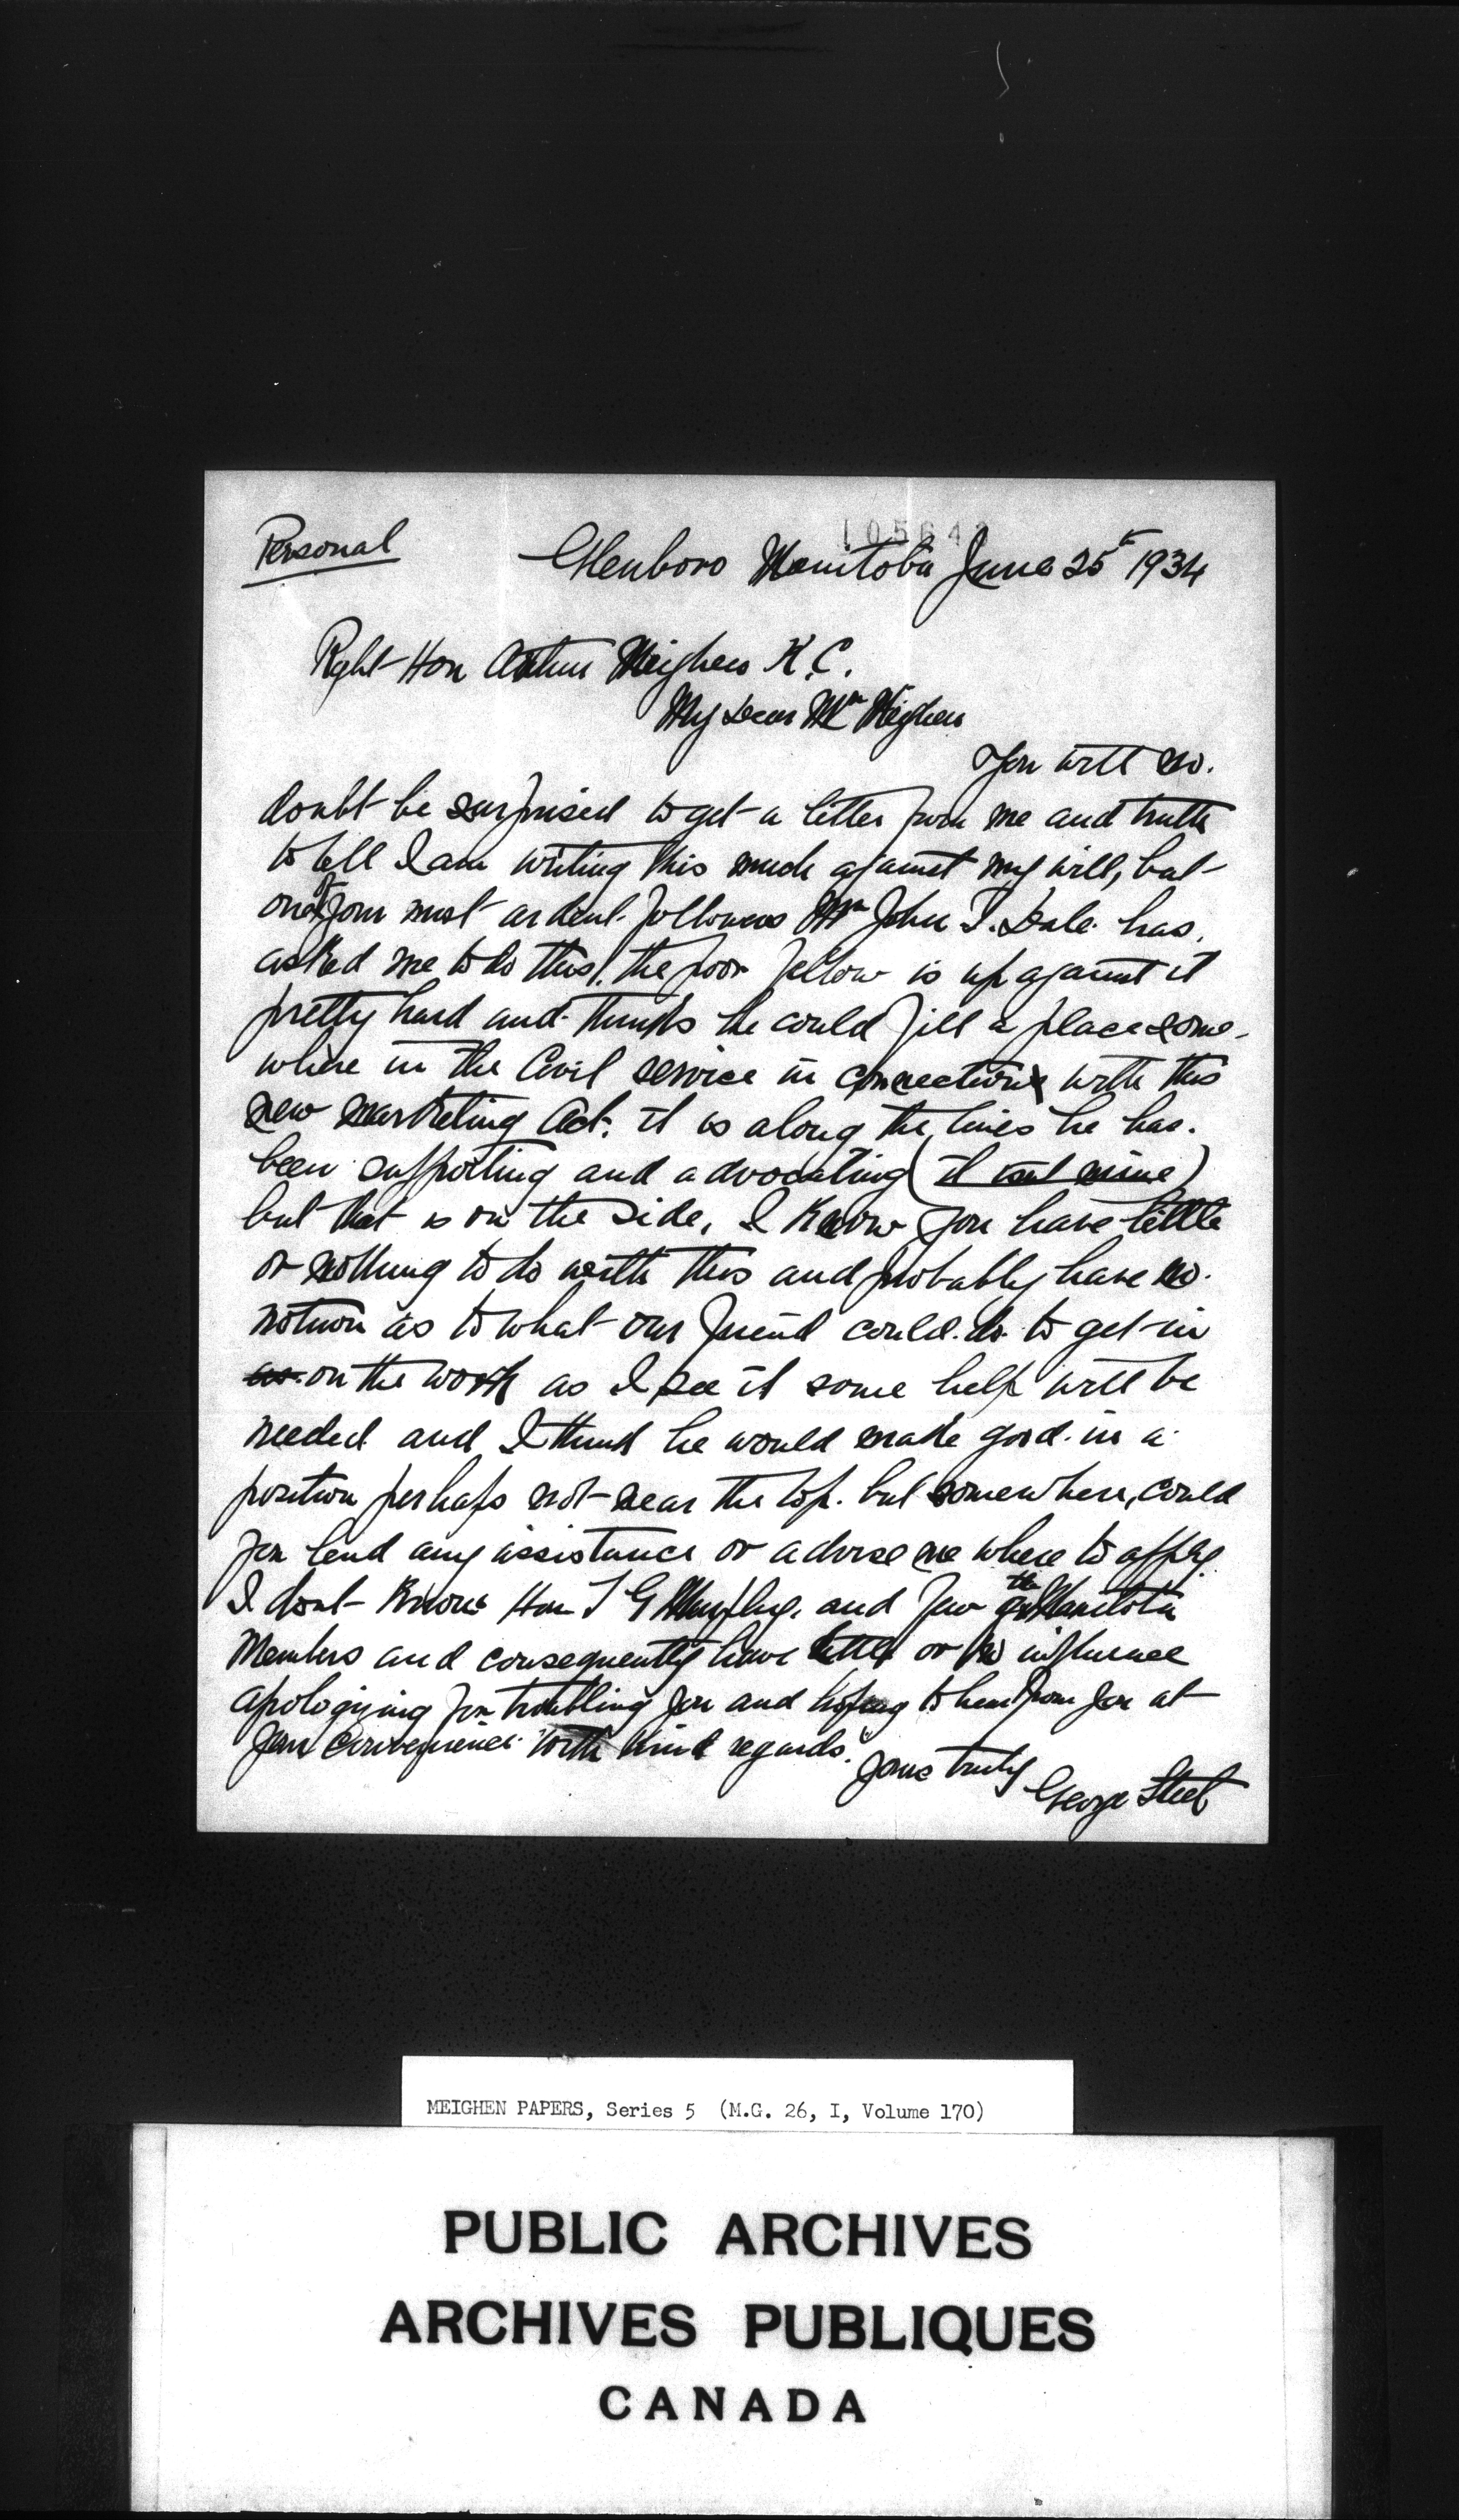 10564
Personal
Glenboro Manitoba June 25th 1934
Right Hon Arthur Meighen K.C.
My Dear Mr Meighen
You will no
doubt be surprised to get a letter from me and truth
to tell I am writing this much against my will, but
one of your most ardent followers Mr John T. Dale has
asked me to do this, the poor fellow is up against it
pretty hard and thinks he could fill a place some-
where in the Civil service in connection with this
new marketing Act. it is along the lines he has
been supporting and advocating (it not mine)
but that is on the side, I know you have little
or nothing to do with this and probably have no
notion as to what our friend could do to get in
as on the work as I see it some help will be
needed and I think he would make good in a
position perhaps not near the top. but somewhere, could
you lend any assistance or advise me where to apply
I dont know Hon T G Murphy, and few of the Manitoba
Members and consequently have little or no influence
apologizing for troubling you and hoping to hear from you at
your convenience with kind regards.
yours truly
George Steel
MEIGHEN PAPERS, Series 5 (M.G. 26, I, Volume 170)
PUBLIC ARCHIVES
ARCHIVES PUBLIQUES
CANADA